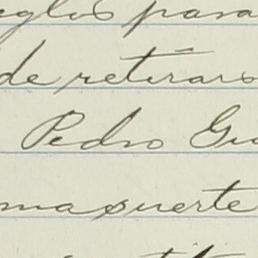 eglos para
de retirars
Pedro Gu
ma suerte